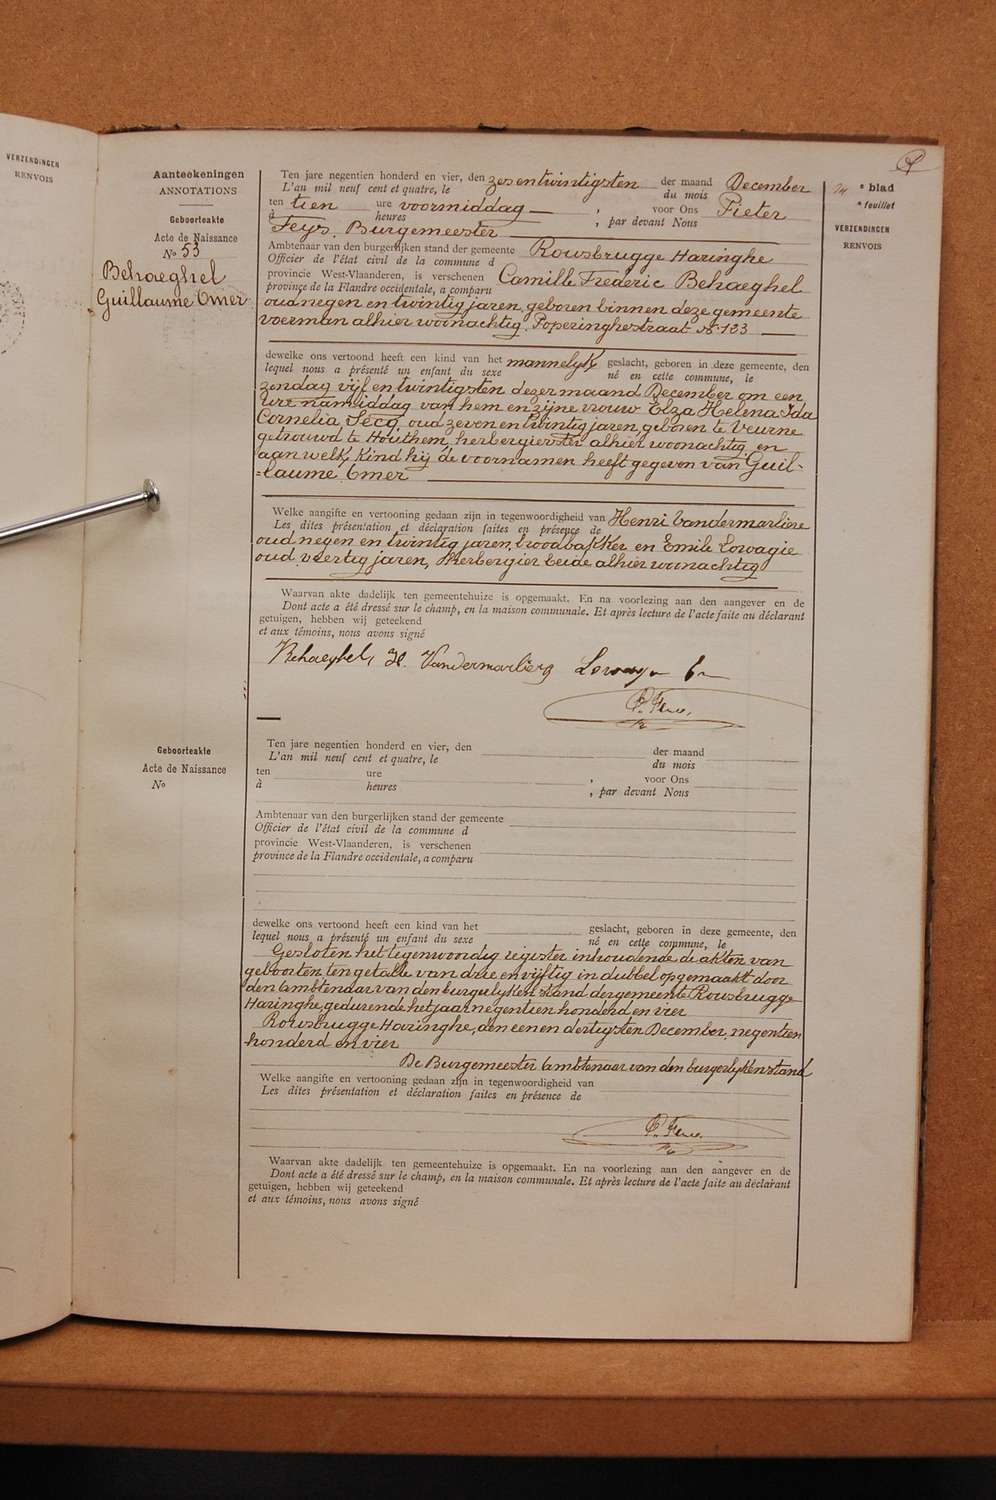 VERZENDINGEN
RENVOIS
Aanteekeningen
ANNOTATIONS
Geboorteakte
Acte de Naissance
No 53
Behaeghel
Guillaume Omer
Ten jare negentien honderd en vier, den zes en twintigsten der maand December
L'an mil neuf cent et quatre, le du mois
ten tien ure voormiddag — , voor Ons Pieter
à heures , par devant Nous
Feys, Burgemeester
Ambtenaar van den burgerlijken stand der gemeente Rousbrugge Haringhe
Officier de l'état civil de la commune d
provincie West-Vlaanderen, is verschenen Camille Frederic Behaeghel
province de la Flandre occidentale, a comparu
oud negen en twintig jaren, geboren binnen deze gemeente
voerman alhier woonachtig, Poperinghestraat No 123
dewelke ons vertoond heeft een kind van het mannelyk geslacht, geboren in deze gemeente, den
lequel nous a présenté un enfant du sexe né en cette commune, le
zondag vijf en twintigsten dezer maand December om een
ure namiddag van hem en zijne vrouw Elza Helena Ida
Cornelia Secq, oud zeven en twintig jaren, geboren te Veurne
getrouwd te Houthem, herbergierster alhier woonachtig en
aan welk kind hij de voornamen heeft gegeven van Guil-
-laume Omer
Welke aangifte en vertooning gedaan zijn in tegenwoordigheid van Henri Vandermarliere
Les dites présentation et déclaration faites en présence de
oud negen en twintig jaren, broodbakker en Emile Lowagie
oud veertig jaren, herbergier beide alhier woonachtig
Waarvan akte dadelijk ten gemeentehuize is opgemaakt. En na voorlezing aan den aangever en de
Dont acte a été dressé sur le champ, en la maison communale. Et après lecture de l'acte faite au déclarant
getuigen, hebben wij geteekend
et aux témoins, nous avons signé
Behaeghel, H. Vandermarliere Lowagie Em
P. Feys.
Geboorteakte
Acte de Naissance
No
Ten jare negentien honderd en vier, den der maand
L'an mil neuf cent et quatre, le du mois
ten ure , voor Ons
à heures , par devant Nous
Ambtenaar van den burgerlijken stand der gemeente
Officier de l'état civil de la commune d
provincie West-Vlaanderen, is verschenen
province de la Flandre occidentale, a comparu
dewelke ons vertoond heeft een kind van het geslacht, geboren in deze gemeente, den
lequel nous a présenté un enfant du sexe né en cette commune, le
Gesloten het tegenwoordig register inhoudende de akten van
geboorten ten getalle van drie en vijftig in dubbel opgemaakt door
den Ambtenaar van den burgerlyken stand der gemeente Rousbrugge
Haringhe, gedurende het jaar negentien honderd en vier
Rousbrugge Haringhe, den een en dertigsten December, negentien
honderd en vier
De Burgemeester Ambtenaar van den burgerlyken stand
Welke aangifte en vertooning gedaan zijn in tegenwoordigheid van
Les dites présentation et déclaration faites en présence de
P. Feys.
Waarvan akte dadelijk ten gemeentehuize is opgemaakt. En na voorlezing aan den aangever en de
Dont acte a été dressé sur le champ, en la maison communale. Et après lecture de l'acte faite au déclarant
getuigen, hebben wij geteekend
et aux témoins, nous avons signé
e blad
e feuillet
VERZENDINGEN
RENVOIS